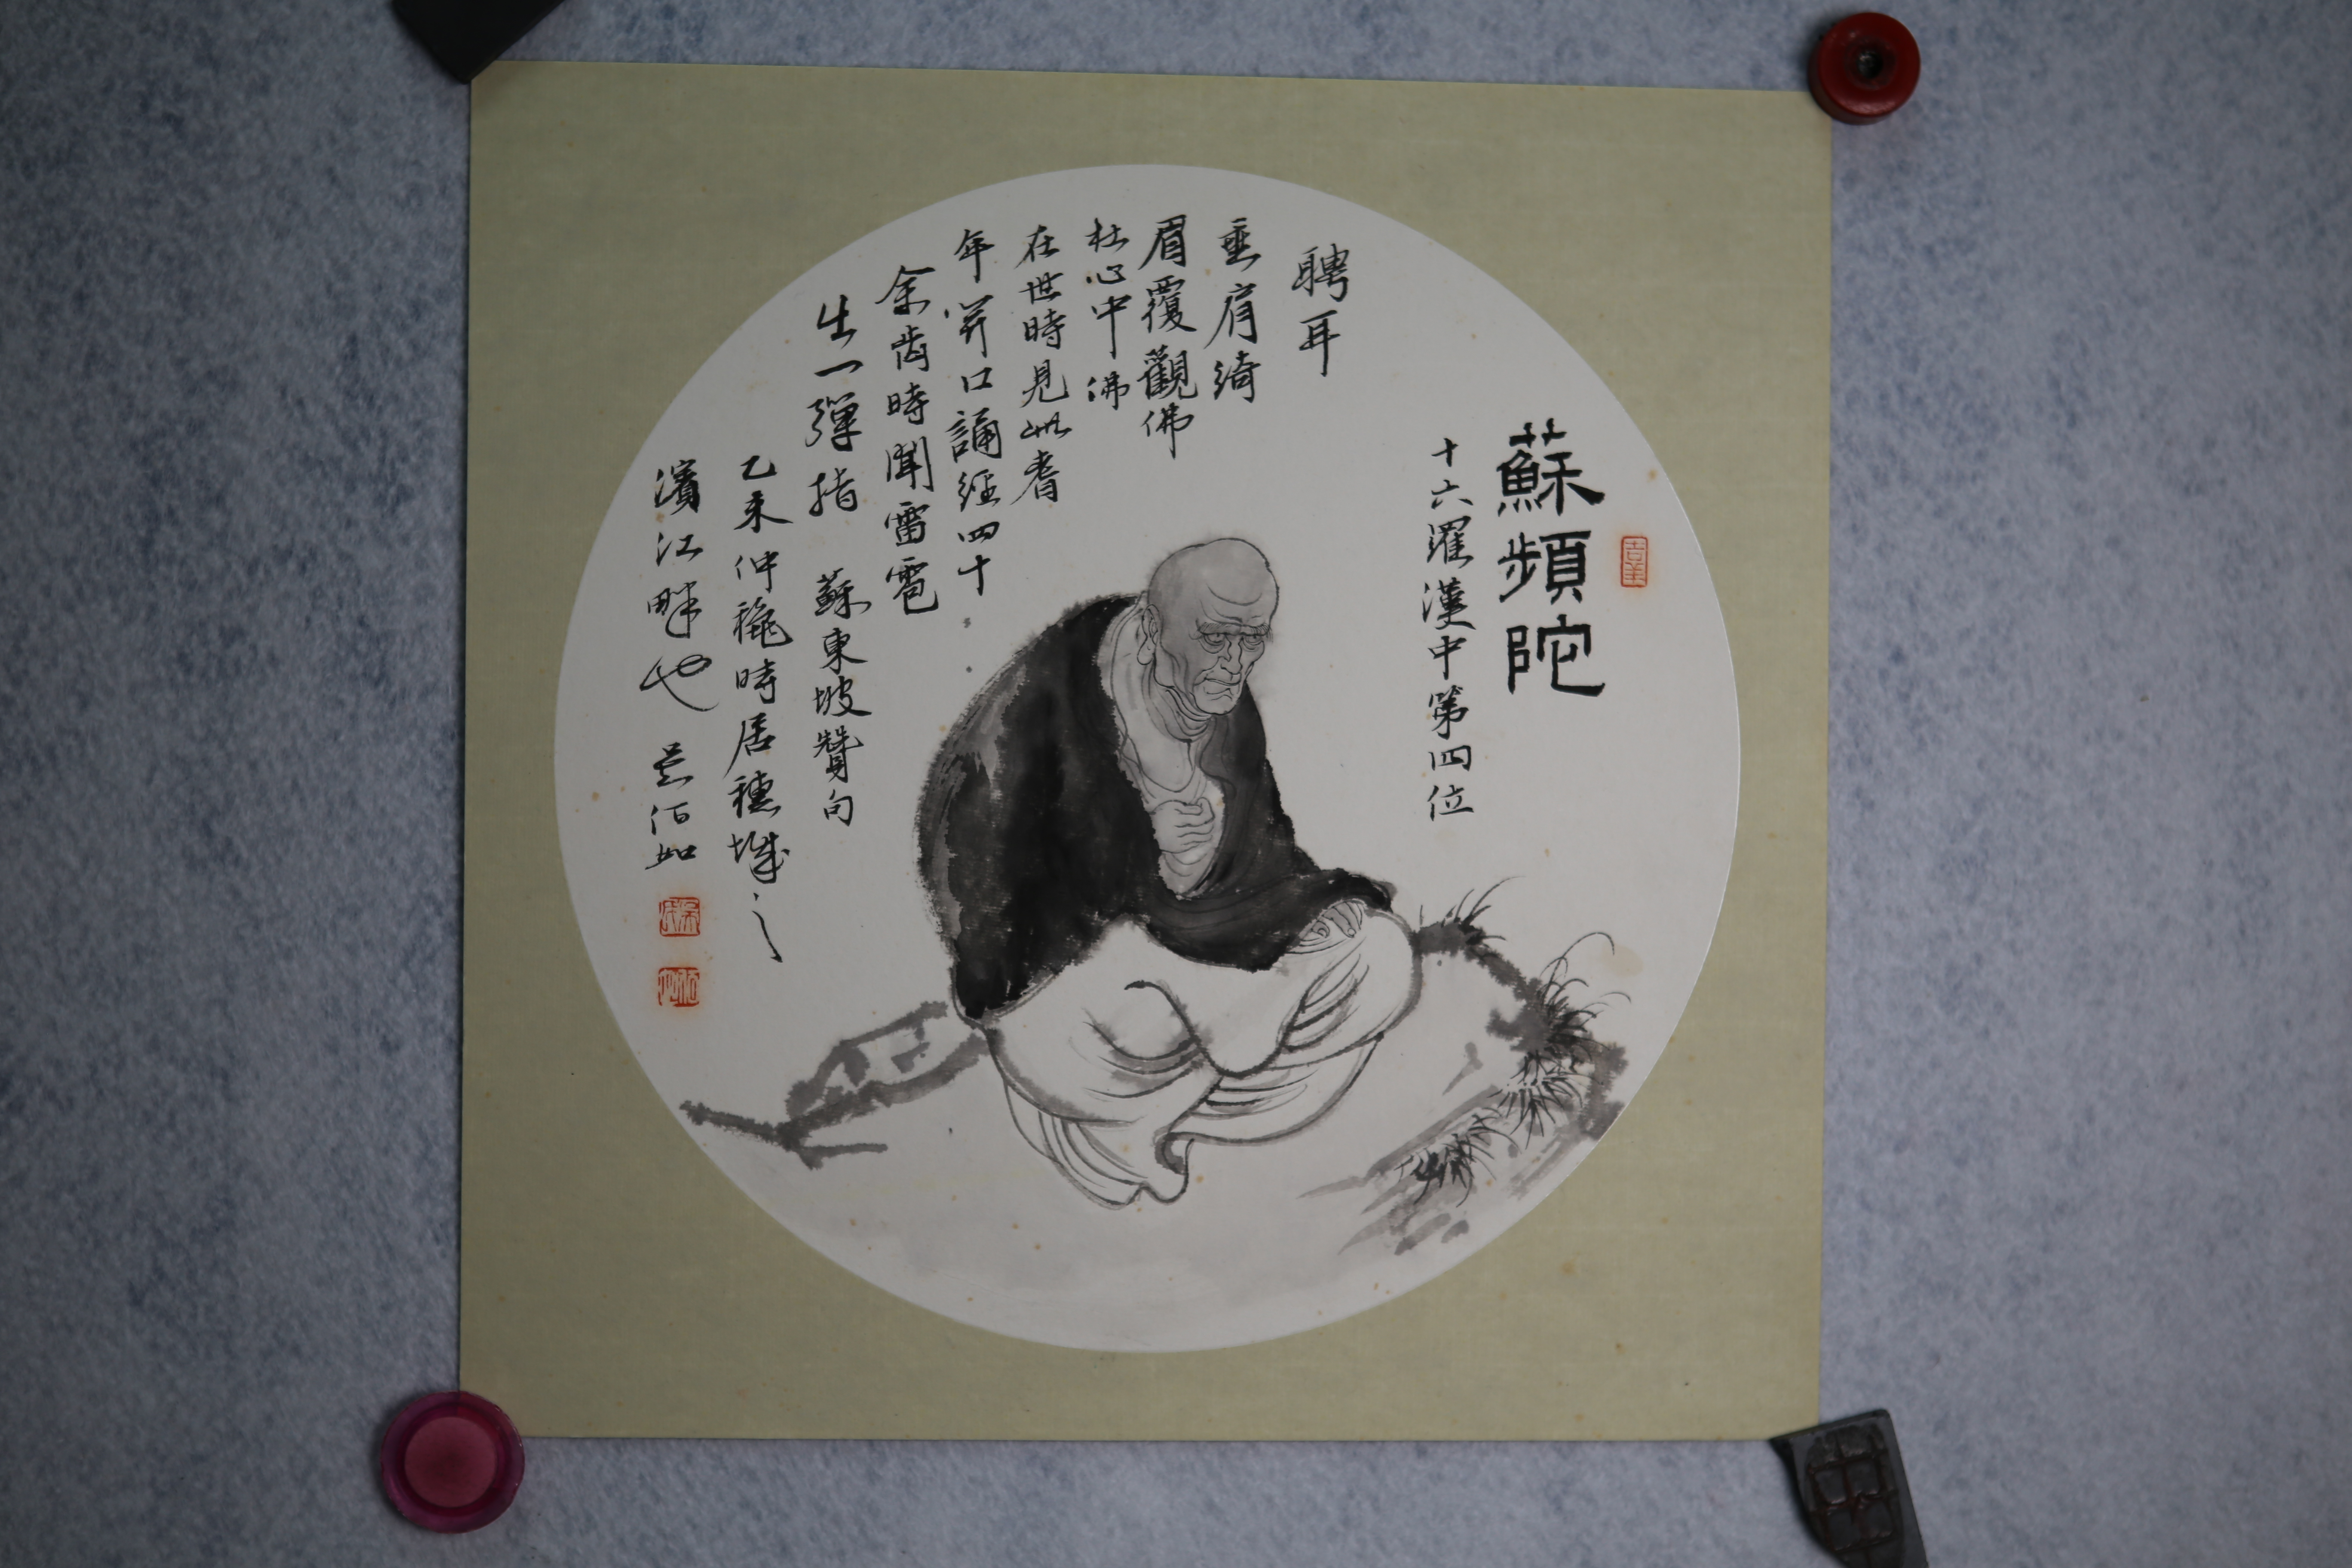 吉羊
蘇頻陀
十六羅漢中第四位
聘耳
垂肩綺
眉覆觀佛
杜心中佛
在世時見此耆
年開口誦經四十
余齒時聞雷雹
出一彈指 蘇東坡贊句
乙未仲龝時居穗城之
濱江畔也 吳佰如